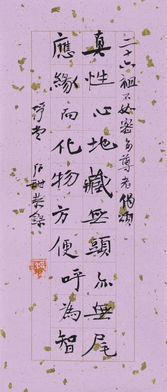 二十六祖不如密多尊者偈頌
真性心地藏無頭亦無尾
應緣而化物方便呼為智